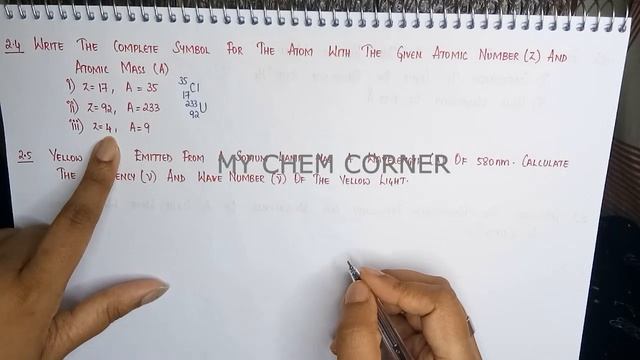 2.4 WRITE THE COMPLETE SYMBOL FOR THE ATOM WITH THE GIVEN ATOMIC NUMBER (Z) AND
ATOMIC MASS (A)
i) Z=17, A=35 ³⁵₁₇Cl
ii) Z=92, A=233 ²³³₉₂U
iii) Z=4, A=9
2.5 YELLOW EMITTED FROM A OF 580nm. CALCULATE
MY CHEM CORNER
THE (ν) AND WAVE NUMBER (ν̄) OF THE YELLOW LIGHT.